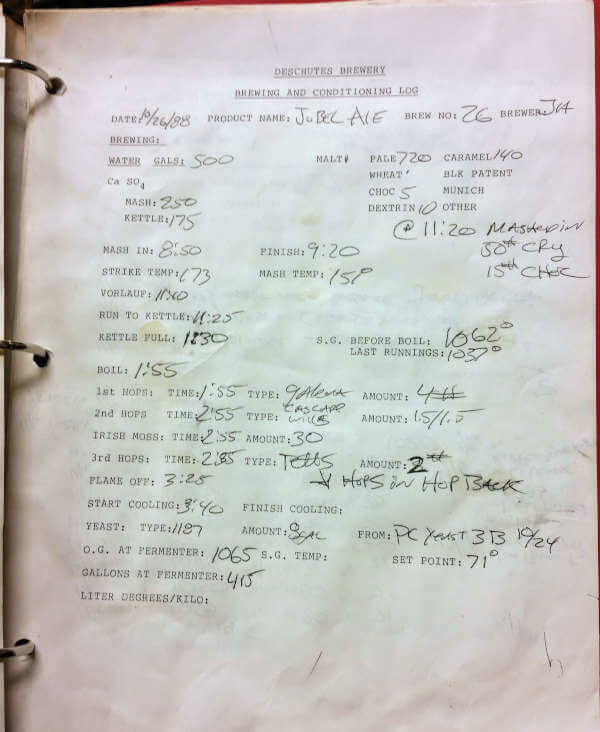 DESCHUTES BREWERY
BREWING AND CONDITIONING LOG
DATE: 10/26/88 PRODUCT NAME: JUBEL ALE BREW NO: 26 BREWER:
BREWING:
WATER GALS: 500 MALT# PALE 720 CARAMEL 140
WHEAT BLK PATENT
Ca SO4 CHOC 5 MUNICH
MASH: 250 DEXTRIN 10 OTHER
KETTLE: 175
@ 11:20 MASHED IN
MASH IN: 8:50 FINISH: 9:20 50# CRY
STRIKE TEMP: 173 MASH TEMP: 15# CHOC
VORLAUF:
RUN TO KETTLE: 11:25
KETTLE FULL: S.G. BEFORE BOIL: 1062°
LAST RUNNINGS: 1037°
BOIL: 1:55
1st HOPS: TIME: 1:55 TYPE: GALENA AMOUNT: 4#
2nd HOPS TIME: 2:55 TYPE: CASCADE AMOUNT: 1.5/1.5
IRISH MOSS: TIME: 2:55 AMOUNT: 30
3rd HOPS: TIME: TYPE: AMOUNT: 2#
FLAME OFF: 3:25 HOPS IN HOP BACK
START COOLING: 3:40 FINISH COOLING:
YEAST: TYPE: 1187 AMOUNT: 8GAL FROM: PC YEAST 3B 10/24
O.G. AT FERMENTER: 1065 S.G. TEMP: SET POINT: 71°
GALLONS AT FERMENTER: 415
LITER DEGREES/KILO: